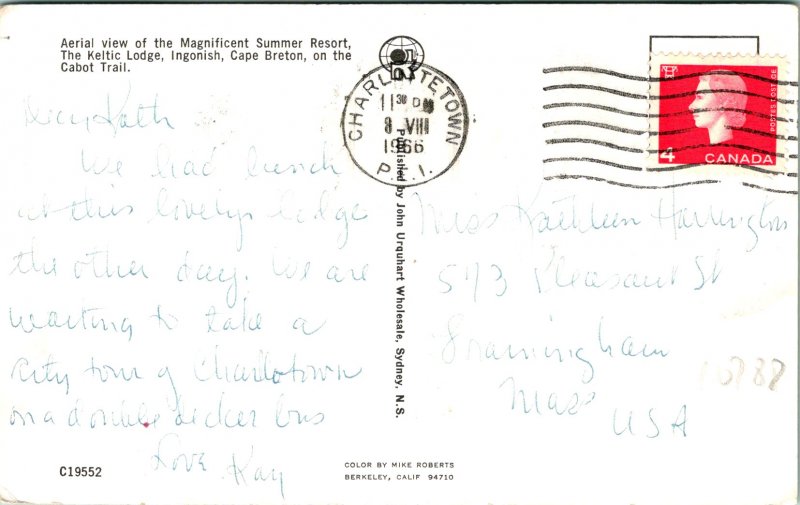 Aerial view of the Magnificent Summer Resort,
The Keltic Lodge, Ingonish, Cape Breton, on the
Cabot Trail.
CHARLOTTETOWN
11 30
8 VIII
1966
P.E.I.
4
CANADA
POSTES POSTAGE
Dear Kath
We had lunch
at this lovely lodge
the other day. We are
waiting to take a
city tour of Charlotown
on a double decker bus
Love Kay
Published by John Urquhart Wholesale, Sydney, N.S.
Miss Kathleen Harrington
573 Pleasant St
Framingham
Mass
USA
C19552
COLOR BY MIKE ROBERTS
BERKELEY, CALIF 94710